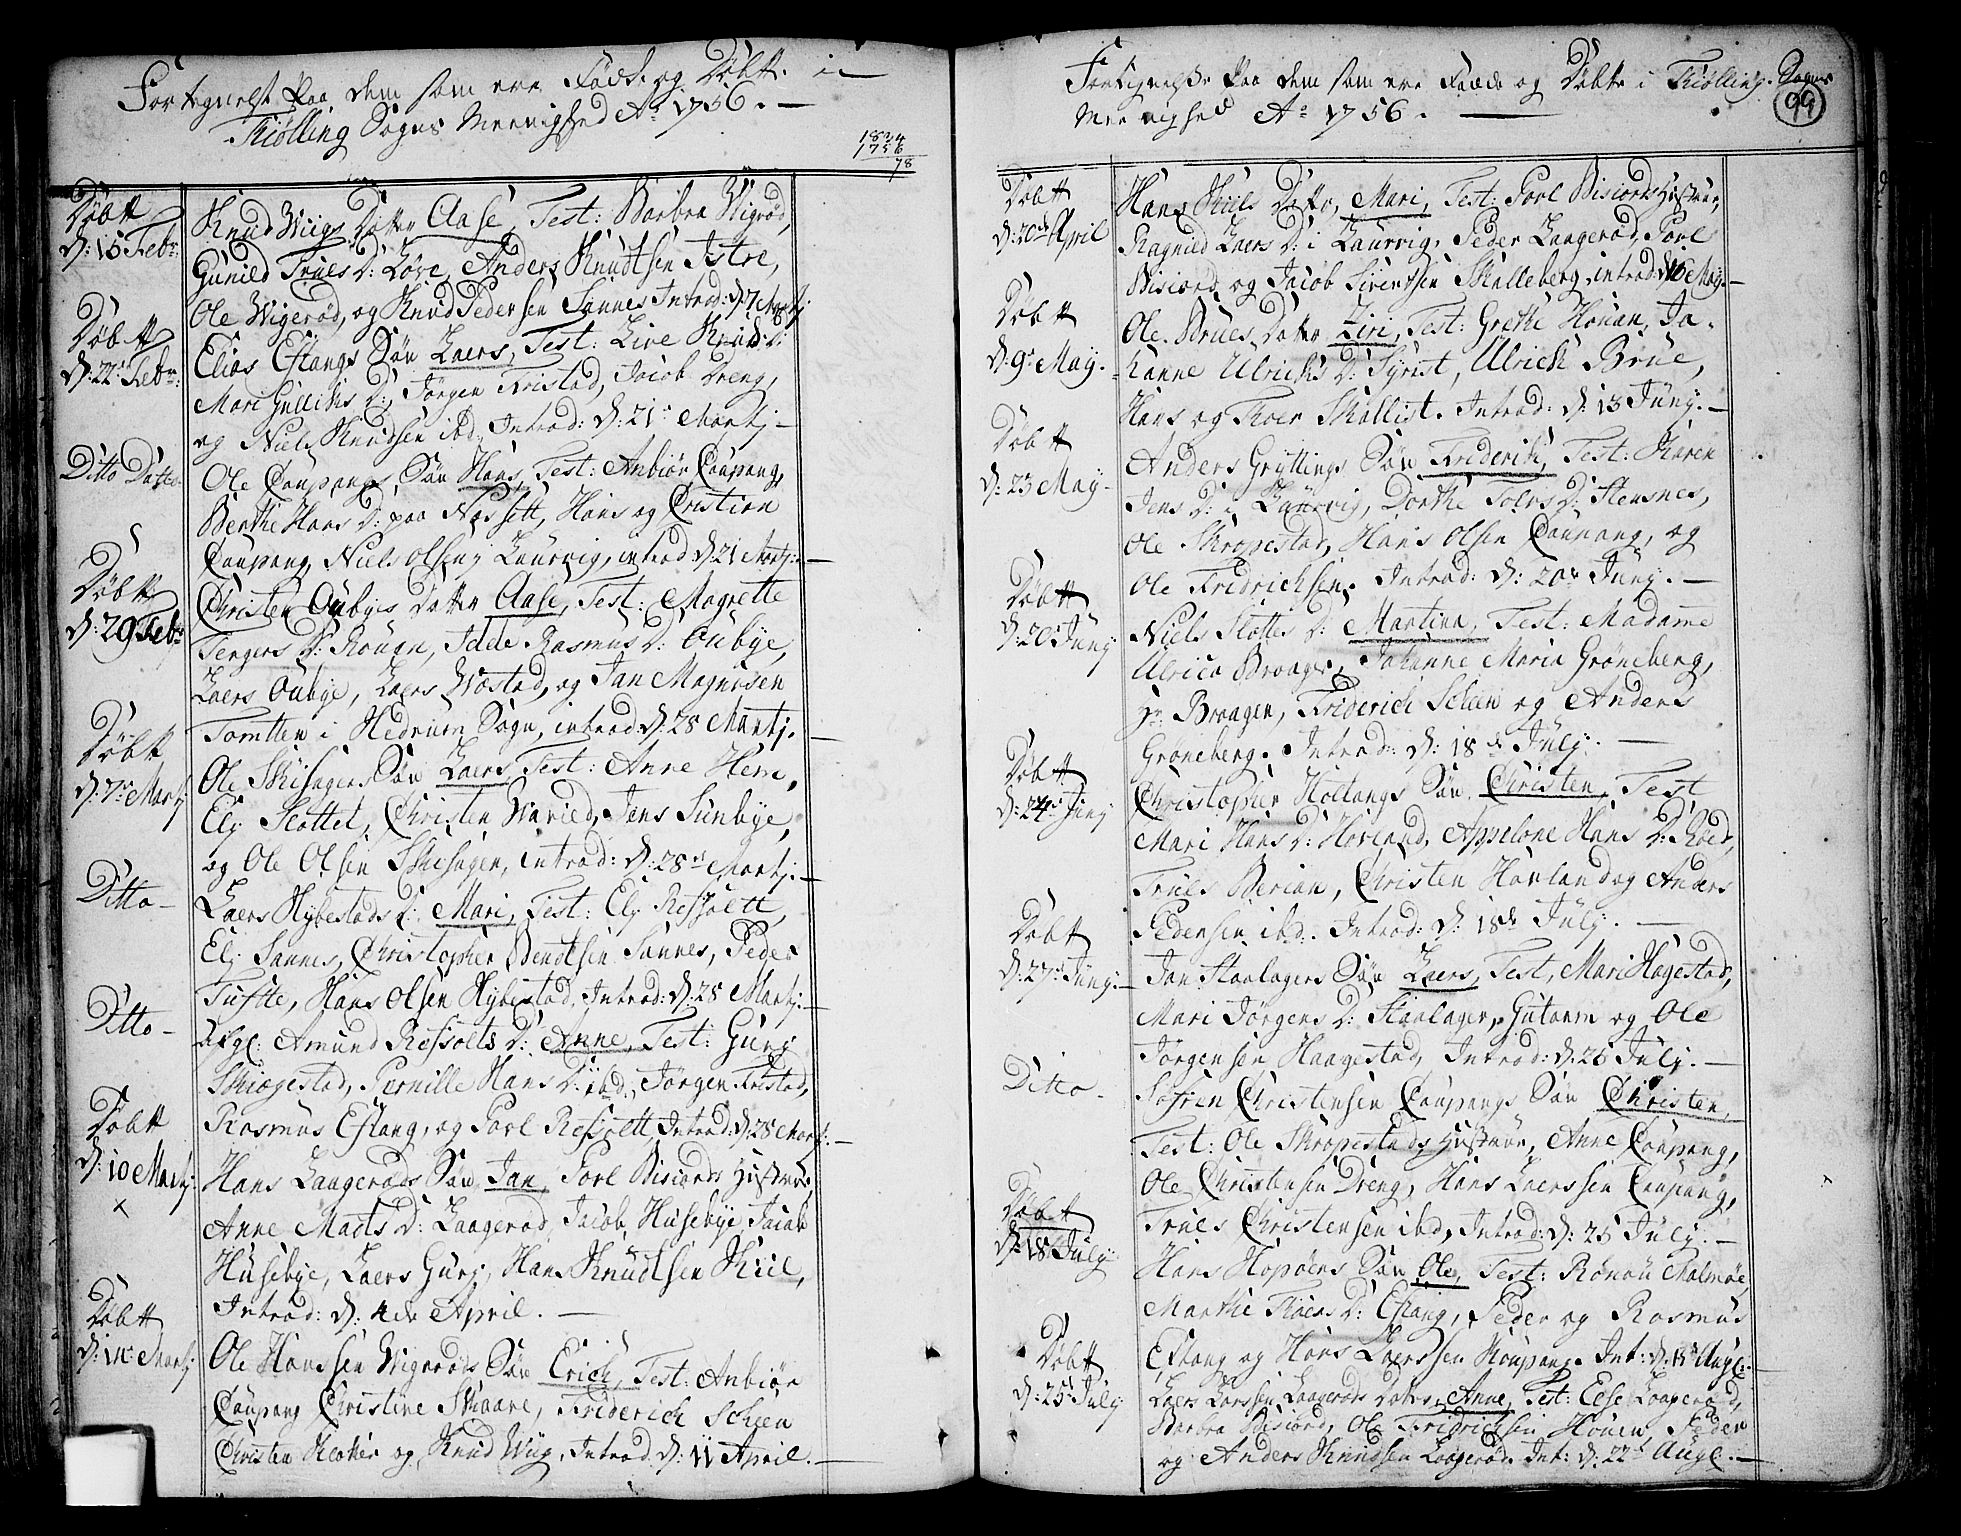 Fortegnelse paa dem som ere Fød. og Døbt. i
Tiølling Sogns Meenighed Ao 1756.
1834
1756
78
Døbtt
d: 15 Febr:
Knud Wiigs Datter Aase, Test: Barbra Wigrød,
Gunild Truls D: Løve, Anders Knudtsen Istre,
Ole Wigerød, og Knud Pedersen Sannes Introd: d: 7 Martj
Døbtt
d: 22 Febr:
Elias Estangs Søn Laers, Test: Live Knud:
Mari Gulliks D: Jørgen Fristad, Jacob Dreng,
og Niels Knudsen ibd: Introd: d: 21 Martj
Ditto Datto
Ole Coupangs Søn Hans, Test: Anbiør Coupang,
Berthe Hans D: paa Næssett, Hans og Cristian
Coupang, Niels Olsen j Laurvig, introd d: 21 Martj:
Døbtt
d: 29 Febr
Christen Oubyes Datter Aase, Test: Magrette
Tergers D: Rouan, Idde Rasmus D: Oubye,
Laers Oubye, Laers Wostad, og Jan Magnusen
Tomtten i Hedrum Sogn, introd d: 28 Martj.
Døbtt
d: 7 Martj
Ole Skisagers Søn Laers, Test: Anne Hem,
Elj Slottet, Christen Waried, Jens Sunbye,
og Ole Olsen Skisagen, introd: d: 28 Martj:
Ditto
Laers Hybestads D: Mari, Test: Elj Ressaltt,
Elj Sannes, Christopher Bendtsen Sannes, Peder
Tufte, Hans Olsen Hybestad, Introd: d: 28 Martj:
Ditto
Amund Ressolts D: Anne, Test: Gurj
Skiægestad, Pernille Hans D: ibd: Jørgen Fristad,
Rasmus Estang, og Porl Ressaltt, Introd: d: 28 Martj:
Døbtt
d: 10 Martj
x
Hans Laagerøds Søn Jan, Porl Bisiords Hustrue,
Anne Madts D: Laagerød, Jacob Husebye, Jacob
Husebye, Laers Gurj, Hans Knudtsen Kiil,
Introd: d: 4de April.
Døbtt
d: 14 Martj
Ole Hanssen Wigerøds Søn Erich, Test: Anbiør
Coupang Christine Skaare, Friderich Schien
Christen Klaker og Knud Wiig, Introd. d: 11 April.
Fortegnelse paa dem som ere Fødde og Døbte i Tiølling. Sogns
Meenighed Ao 1756.
99
Døbtt
d: 20de April
Hans Kiils Datter, Mari, Test: Porl Bisiords Hustrue,
Ragnild Laers D: i Laurvig, Peder Laagerød, Porl
Bisiord, og Jacob Sivertsen Skalleberg, introd: d 16 May.
Døbtt
d: 9 May.
Ole Brues Datter Siri, Test: Grethe Houan, Jo-
hanne Ulrichs D: Syrist, Ulrich Brue,
Hans og Thoer Skallist. Introd: d: 13 Junj.
Døbtt
d: 23 May
Anders Gryttings Søn Friderik, Test: Karen
Jens D: i Laurvig, Dorthe Soers D: Stensnes,
Ole Skropestad, Hans Olsen Coupang, og
Ole Fridrichsen. Introd: d: 20 Junj.
Døbtt
d: 20 Junj
Niels Slottes D: Martina, Test: Madame
Ulrica Broager, Johanne Maria Grøneberg,
Hr. Broagen, Friderich Schien og Anders
Grøneberg. Introd: d: 18de Julj.
Døbtt
d: 24 Junj
Christopher Holtangs Søn Christen, Test
Mari Hans D: Hovland, Appelone Hans D: Roed,
Truls Berian, Christen Havland og Anders
Pedersen ibd. Introd: d: 18de Julj.
Døbtt
d: 27 Junj.
Jan Staalagers Søn Laers, Test, Mari Hagestad,
Mari Jørgens D: Staalager, Gutorm og Ole
Jørgensen Haagestad, Introd: d: 25 Julj.
Ditto
Søfren Christensen Coupangs Søn Christen,
Test: Ole Skropestads Hustrue, Anne Coupang,
Ole Christensen Dreng, Hans Laerssen Coupang,
Truls Christensen ibd, Introd: d: 25 Julj.
Døbtt
d: 18 Julj
Hans Hopøens Søn Ole, Test: Rønøu Malmøe,
Marthe Thoers D: Estang, Peder og Rasmus
Estang og Hans Laerssen Koupang. Int: d: 15 Augl.
Døbtt
d: 25 Julj
Laers Larssen Laagerøds Datter Anne, Test: Else Laagerød,
Barbra Bisiord, Ole Fridrichsen Houen, Peder
og Anders Knudsen Laagerød. Int: d: 22de Augl.